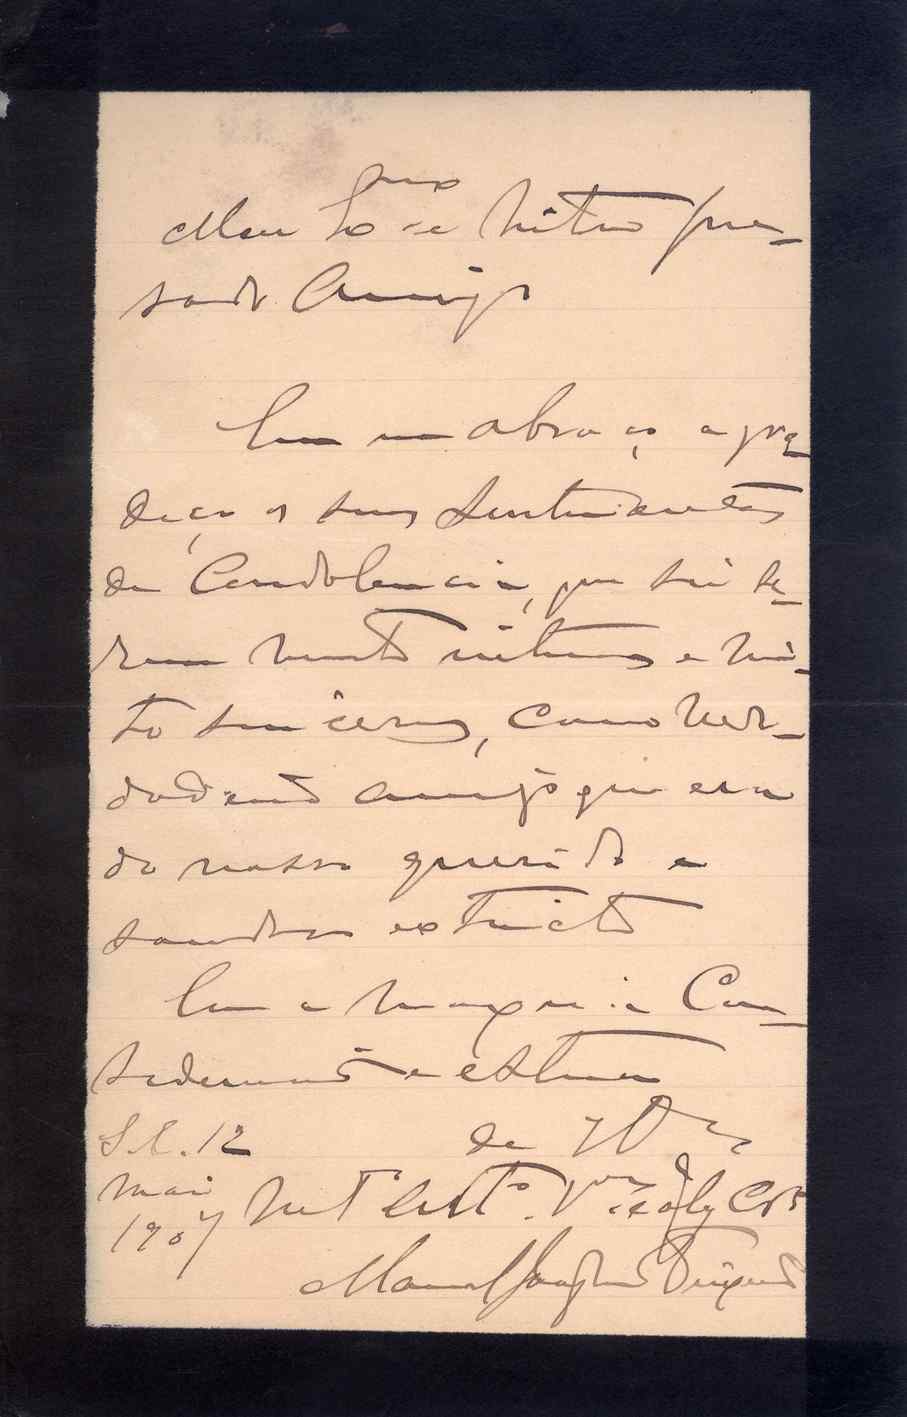 Meu Exmo e muito pre-
sado Amigo
Em um abraço agra-
deço os seus sentimentos
de Condolencia, que sei se-
rem muito intimos e mui-
to sinceros, como ver-
dadeiro amigo que era
do nosso querido e
saudoso extincto
Com a maxima Con-
sideração e estima
S.C. 12 de V. Ex.
Maio
1907 Mto
Manoel Joaquim